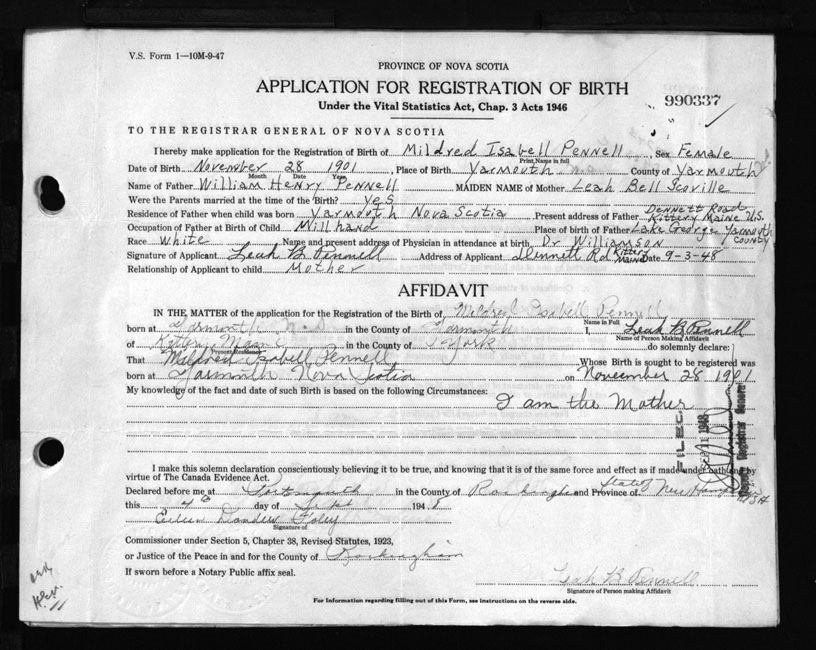 V.S. Form 1—10M-9-47
PROVINCE OF NOVA SCOTIA
APPLICATION FOR REGISTRATION OF BIRTH
Under the Vital Statistics Act, Chap. 3 Acts 1946
990337
TO THE REGISTRAR GENERAL OF NOVA SCOTIA
I hereby make application for the Registration of Birth of Mildred Isabell Pennell, Sex Female
Print Name in full
Date of Birth November 28 1901, Place of Birth Yarmouth County of Yarmouth
Month Date Year
Name of Father William Henry Pennell MAIDEN NAME of Mother Leah Bell Scoville
Were the Parents married at the time of the Birth? yes Dennett Road
Residence of Father when child was born Yarmouth Nova Scotia Present address of Father Kittery Maine U.S.
Occupation of Father at Birth of Child Millhand Place of birth of Father Lake George Yarmouth County
Race White Name and present address of Physician in attendance at birth Dr Williamson
Signature of Applicant Leah B Pennell Address of Applicant Dennett Rd Kittery Maine Date 9-3-48
Relationship of Applicant to child Mother
AFFIDAVIT
IN THE MATTER of the application for the Registration of the Birth of Mildred Isabell Pennell
Name in Full
born at Yarmouth N.S. in the County of Yarmouth I, Leah B Pennell
Name of Person Making Affidavit
of Kittery Maine in the County of York do solemnly declare:
Present Residence
That Mildred Isabell Pennell Whose Birth is sought to be registered was
born at Yarmouth Nova Scotia on November 28 1901
My knowledge of the fact and date of such Birth is based on the following Circumstances:
I am the Mother
FILED
Deputy Registrar General
I make this solemn declaration conscientiously believing it to be true, and knowing that it is of the same force and effect as if made under oath and by
virtue of The Canada Evidence Act.
Declared before me at Portsmouth in the County of Rockingham and Province of State of New Hampshire USA
this day of Sept 1948
Signature of
Commissioner under Section 5, Chapter 38, Revised Statutes, 1923,
or Justice of the Peace in and for the County of Rockingham
If sworn before a Notary Public affix seal.
Leah B Pennell
Signature of Person making Affidavit
For Information regarding filling out of this Form, see instructions on the reverse side.